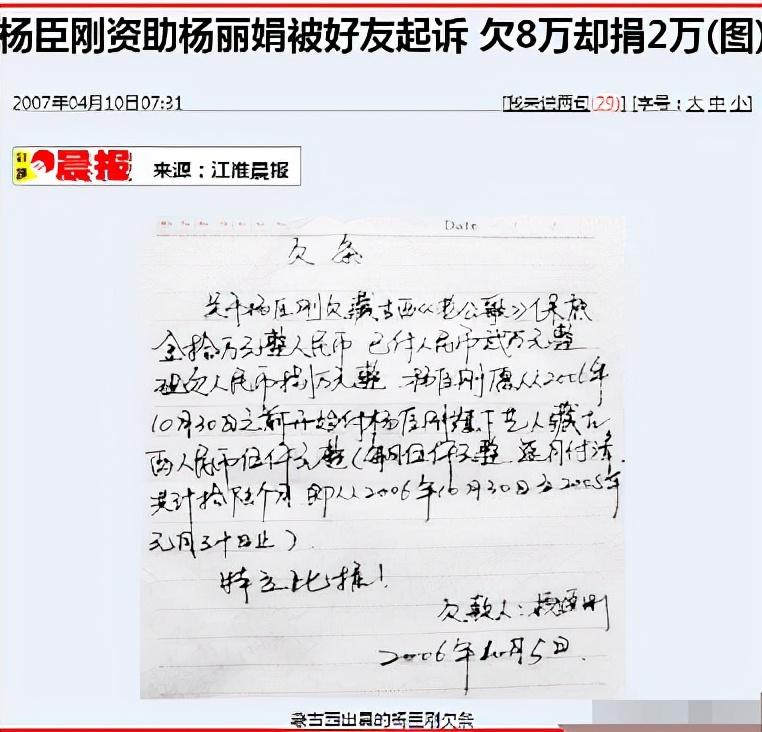 杨臣刚资助杨丽娟被好友起诉 欠8万却捐2万(图)
2007年04月10日07:31 [我来说两句(29)] [字号：大 中 小]
晨报 来源：江淮晨报
Date
欠条
杨臣刚欠藏古西《老公歌》保底
金拾万元整人民币 已付人民币贰万元整
欠人民币捌万元整 杨臣刚愿从2006年
10月30日之前开始付杨臣刚旗下艺人藏古
西人民币伍仟元整(每月伍仟元整 逐月付清
共计拾陆个月 即从2006年10月30日至2008年
元月三十日止)
特立此据!
欠款人:杨臣刚
2006年10月5日
藏古西出具的杨臣刚欠条